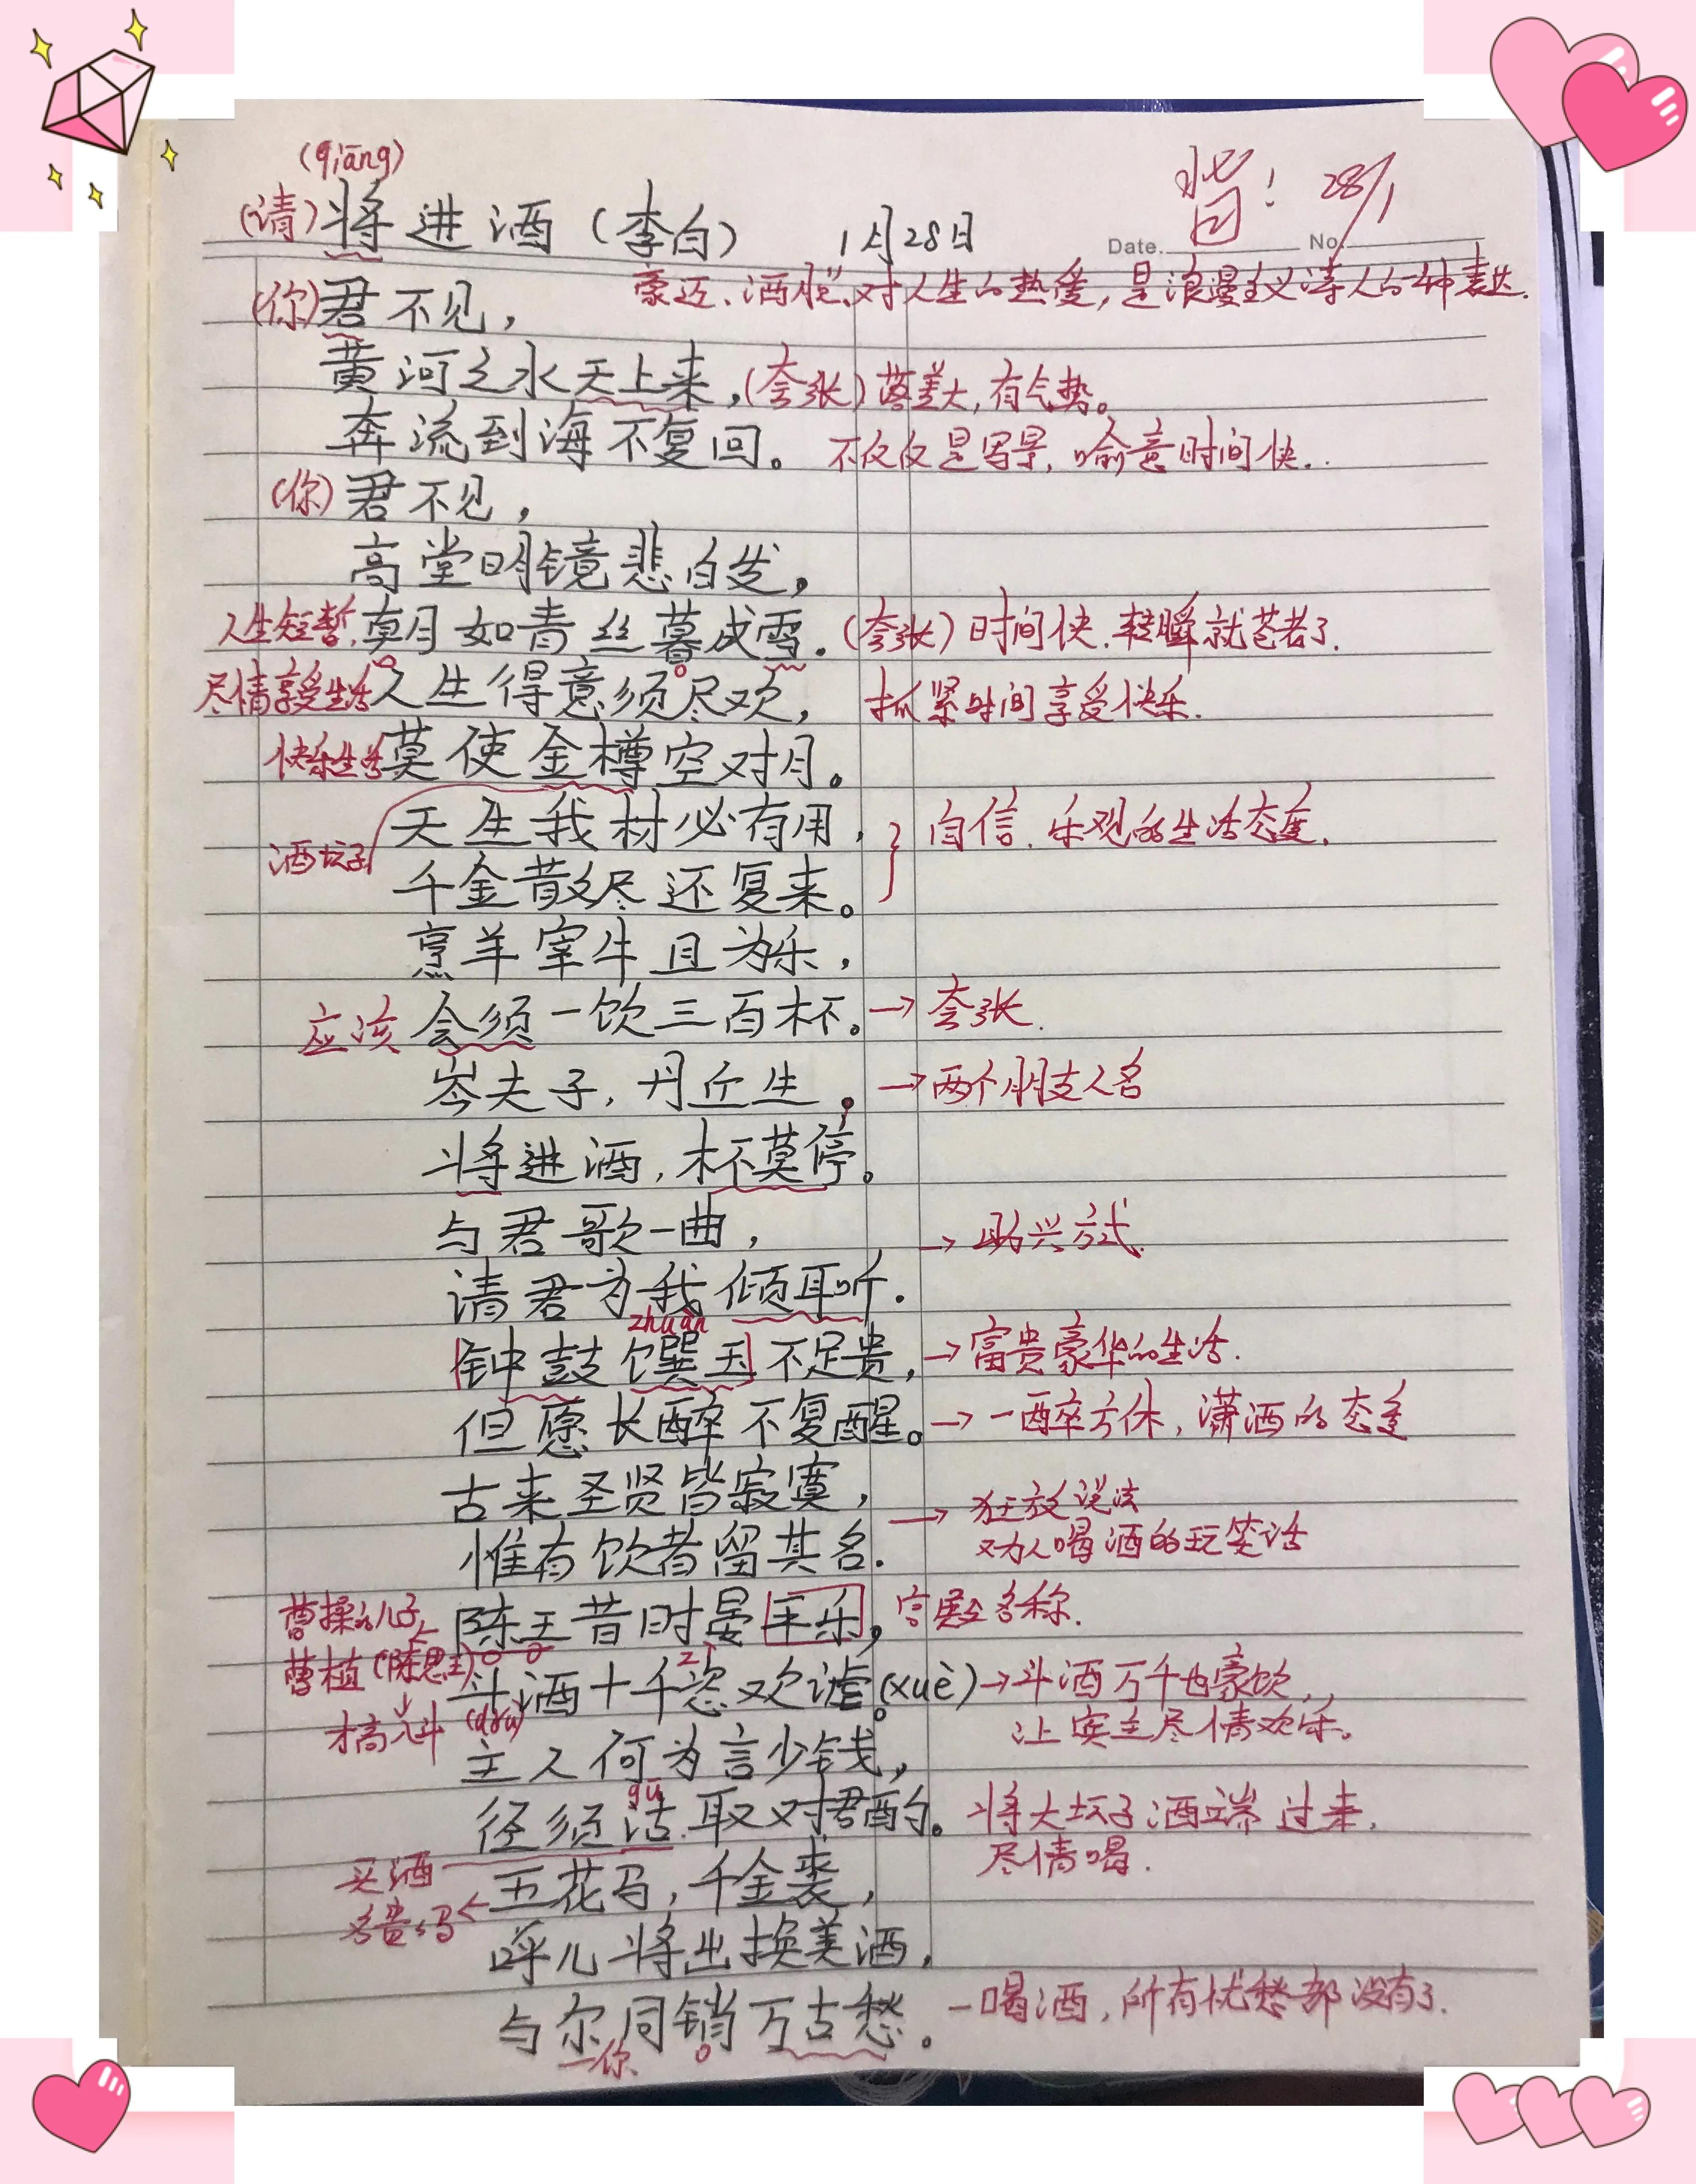 (qiāng)
(请)将进酒(李白) 1月28日 背! 28/1
Date. No.
豪迈、洒脱、对人生的热爱,是浪漫主义诗人的一种表达.
(你)君不见,
黄河之水天上来,(夸张)落差大,有气势。
奔流到海不复回。不仅仅是写景,喻意时间快..
(你)君不见,
高堂明镜悲白发,
人生短暂,朝如青丝暮成雪.(夸张)时间快.转瞬就苍老了.
尽情享受生活 人生得意须尽欢, 抓紧时间享受快乐.
快乐生活 莫使金樽空对月。
天生我材必有用, 自信.乐观的生活态度.
酒坛子
千金散尽还复来。
烹羊宰牛且为乐,
应该 会须一饮三百杯。→夸张.
岑夫子,丹丘生, →两个朋友人名
将进酒,杯莫停。
与君歌一曲, →助兴方式.
请君为我倾耳听.
zhuàn
钟鼓馔玉不足贵,→富贵豪华的生活.
但愿长醉不复醒。→一醉方休,潇洒的态度
古来圣贤皆寂寞, →狂放说法
惟有饮者留其名. 对人喝酒的玩笑话
曹操的儿子← 陈王昔时晏平乐,宫殿名称.
曹植(陈思王) zì
斗酒十千恣欢谑。(xuè)→斗酒万千也豪饮,
才高八斗 (dǒu) 让宾主尽情欢乐。
主人何为言少钱,
gū
径须沽取对君酌。将大坛子酒端过来,
买酒 尽情喝.
五花马,千金裘,
名贵的马←
呼儿将出换美酒,
与尔同销万古愁。一喝酒,所有忧愁都没有了.
—你